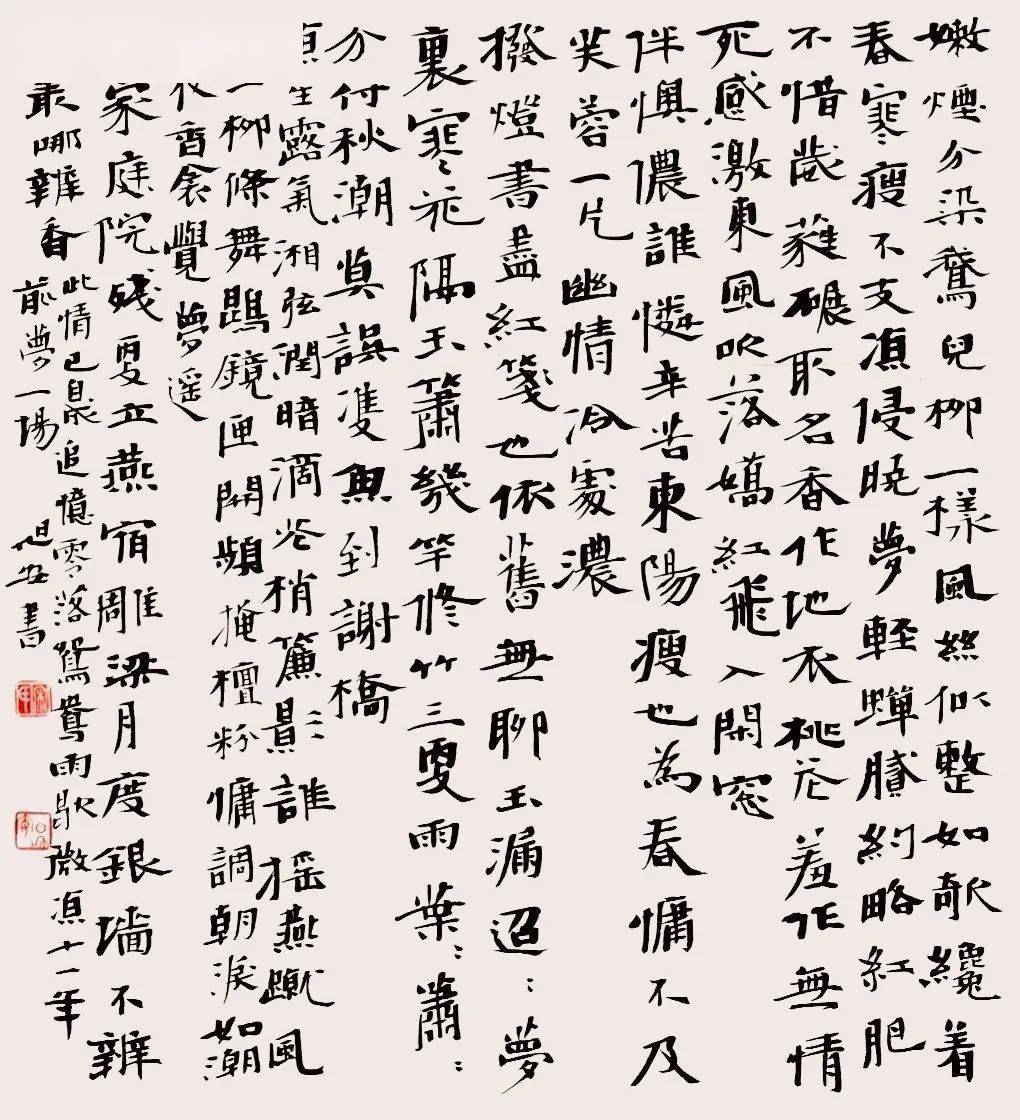 嫩煙分染鵞兒柳一樣風絲似整如欹纔着
春寒瘦不支涼侵曉夢輕蟬膩約略紅肥
不惜葳蕤碾取名香作地衣桃花羞作無情
死感激東風吹落嬌紅飛入閒窓
伴懊儂誰憐辛苦東陽瘦也為春慵不及
芙蓉一片幽情冷處濃
撥燈書盡紅箋也依舊無聊玉漏迢〻夢
裏寒花隔玉簫幾竿修竹三更雨葉〻蕭〻
分付秋潮莫誤雙魚到謝橋
生露氣湘弦潤暗滴花梢簾影〻誰摇燕蹴風
柳條舞鵾鏡匣開頻掩檀粉慵調朝淚如潮
香衾覺夢遥
家庭院殘更立燕宿雕梁月度銀墻不辨
哪辨香此情已自成追憶零落鴛鴦雨歇微涼十一年
前夢一場
書